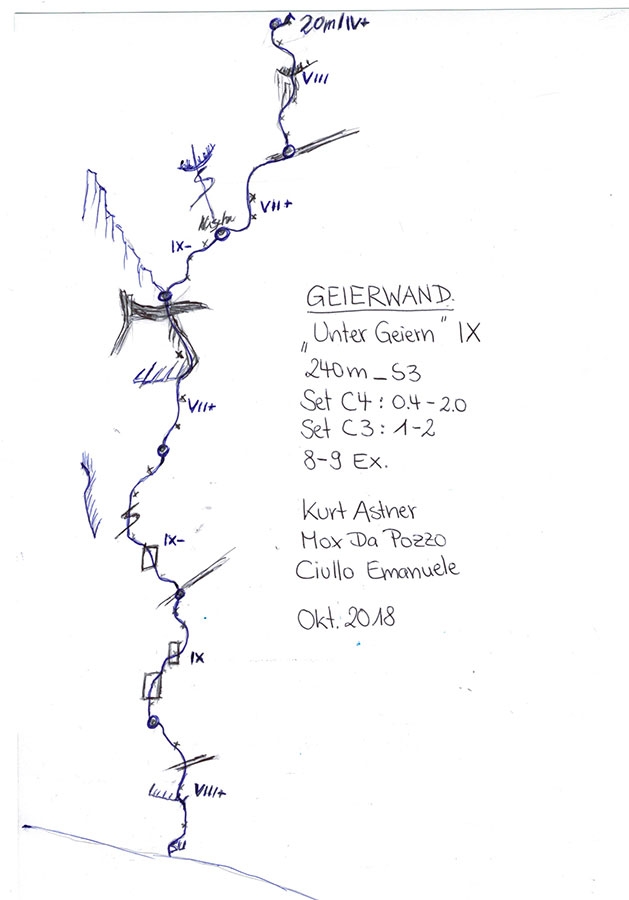 20m/IV+
VIII
VII+
Nische
IX-
VII+
IX-
IX
VIII+
GEIERWAND:
„Unter Geiern" IX
240m_S3
Set C4: 0.4-2.0
Set C3: 1-2
8-9 Ex.
Kurt Astner
Mox Da Pozzo
Ciullo Emanuele
Okt. 2018